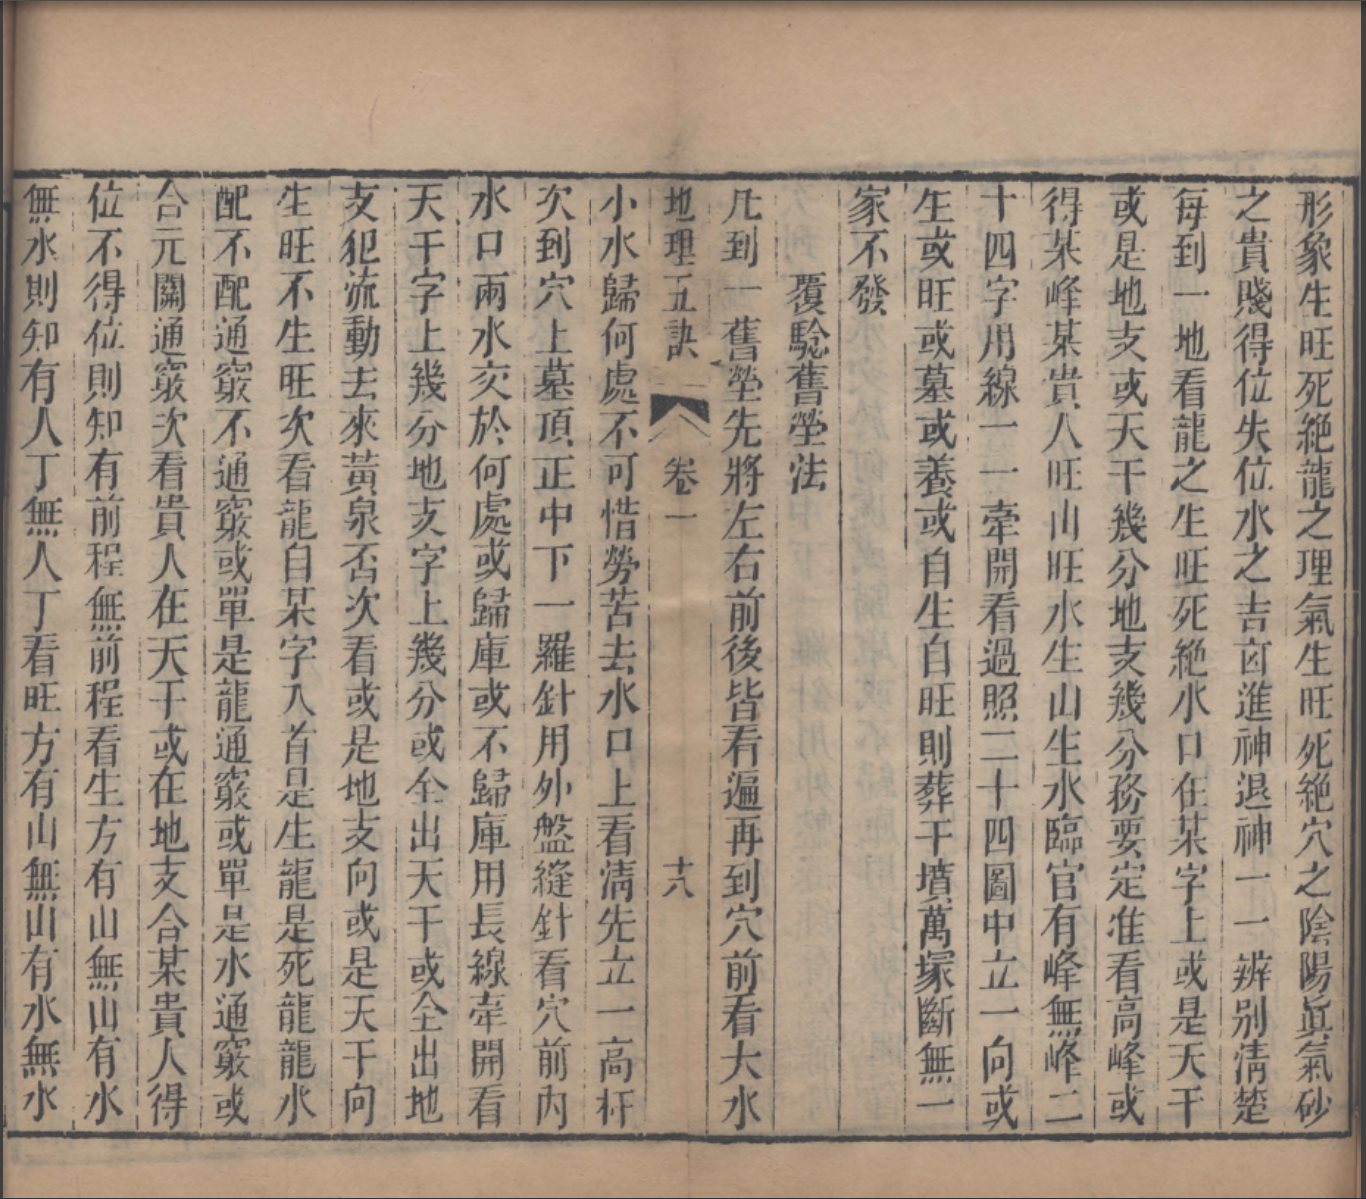 形象生旺死絶龍之理氣生旺死絶穴之陰陽眞氣砂
之貴賤得位失位水之吉凶進神退神一一辨别淸楚
每到一地看龍之生旺死絶水口在某字上或是天干
或是地支或天干幾分地支幾分務要定准看高峰或
得某峰某貴人旺山旺水生山生水臨官有峰無峰二
十四字用線一一牽開看過照二十四圖中立一向或
生或旺或墓或養或自生自旺則葬千墳萬塚斷無一
家不發
覆騐舊塋法
凡到一舊塋先將左右前後皆看遍再到穴前看大水
地理五訣 卷一 十八
小水歸何處不可惜勞苦去水口上看淸先立一高杆
次到穴上墓頂正中下一羅針用外盤縫針看穴前内
水口兩水交於何處或歸庫或不歸庫用長線牽開看
天干字上幾分地支字上幾分或全出天干或全出地
支犯流動去來黃泉否次看或是地支向或是天干向
生旺不生旺次看龍自某字入首是生龍是死龍龍水
配不配通竅不通竅或單是龍通竅或單是水通竅或
合元關通竅次看貴人在天干或在地支合某貴人得
位不得位則知有前程無前程看生方有山無山有水
無水則知有人丁無人丁看旺方有山無山有水無水